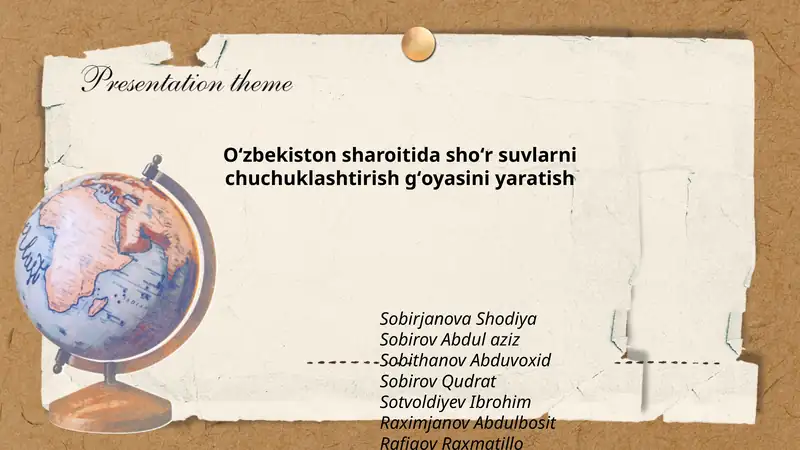 Presentation theme
Oʻzbekiston sharoitida shoʻr suvlarni
chuchuklashtirish gʻoyasini yaratish
Sobirjanova Shodiya
Sobirov Abdul aziz
Sobithanov Abduvoxid
Sobirov Qudrat
Sotvoldiyev Ibrohim
Raximjanov Abdulbosit
Rafiqov Raxmatillo